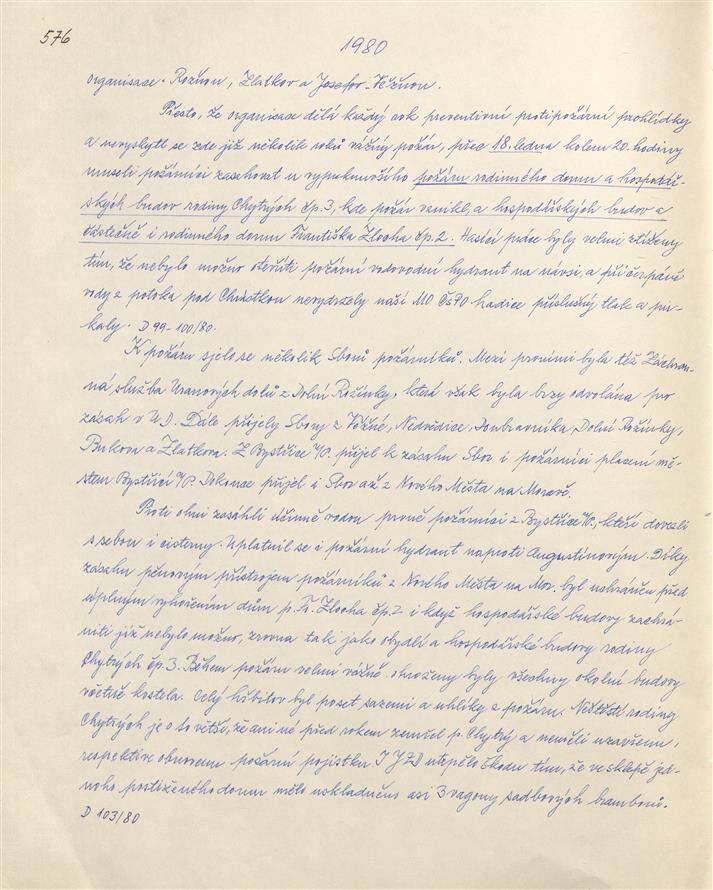 576
1980
organisace. Rožnou, Zlatkov a Josefov-Věžnou.
Přesto, že organisace dělá každý rok preventivní protipožární prohlídky
a nevyskytl se zde již několik roků vážný požár, přec 18. ledna kolem 20. hodiny
museli požárníci zasahovat u vypuknuvšího požáru rodinného domu a hospodář-
ských budov rodiny Chytrých čp. 3, kde požár vznikl, a hospodářských budov a
částečně i rodinného domu Františka Zlocha čp. 2. Hasící práce byly velmi ztíženy
tím, že nebylo možno otevříti požární vodovodní hydrant na návsi, a při čerpání
vody z potoka pod Chrástkou nevydržely naší MO ČSPO hadice příslušný tlak a pu-
kaly. D 99-100/80.
K požáru sjelo se několik Sborů požárníků. Mezi prvními byla též Záchran-
ná služba Uranových dolů z Dolní Rožínky, která však byla brzy odvolána pro
zásah v U.D. Dále přijely Sbory z Věžné, Nedvědice, Doubravníka, Dolní Rožínky,
Bukova a Zlatkova. Z Bystřice n/P. přijel k zásahu Sbor i požárníci placení mě-
stem Bystřicí n/P. Dokonce přijel i Sbor až z Nového Města na Moravě.
Proti ohni zasáhli účinně vodou prvně požárníci z Bystřice n/P., kteří dovezli
s sebou i cisterny. Uplatnil se i požární hydrant naproti Augustinovým. Díky
zásahu pěnovým přístrojem požárníků z Nového Města na Mor. byl uchráněn před
úplným vyhořením dům p. Fr. Zlocha čp. 2 i když hospodářské budovy zachrá-
niti již nebylo možno, zrovna tak jako obydlí a hospodářské budovy rodiny
Chytrých čp. 3. Během požáru velmi vážně ohroženy byly všechny okolní budovy
včetně kostela. Celý hřbitov byl poset sazemi a uhlíky z požáru. Neštěstí rodiny
Chytrých je o to větší, že ani ne před rokem zemřel p. Chytrý a neměli uzavřenu,
respektive obnovenu požární pojistku. I JZD utrpělo škodu tím, že ve sklepě jed-
noho postiženého domu mělo uskladněno asi 3 vagony sadbových brambor.
D 103/80